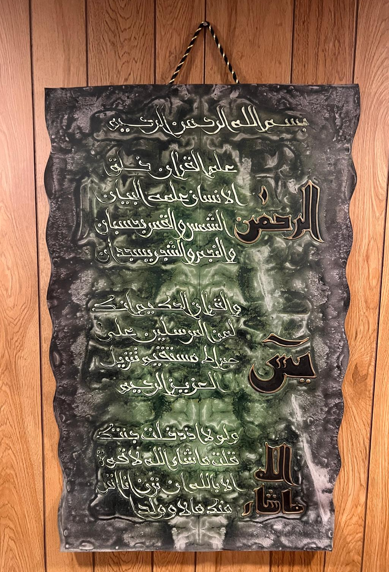 بسم الله الرحمن الرحيم
الرحمن
علم القران خلق
الانسان علمه البيان
الشمس والقمر بحسبان
والنجم والشجر يسجدان
يس
والقران الحكيم انك
لمن المرسلين على
صراط مستقيم تنزيل
العزيز الرحيم
ما شاء الله
ولولا اذ دخلت جنتك
قلت ما شاء الله لا قوة
الا بالله ان ترن انا اقل
منك مالا وولدا